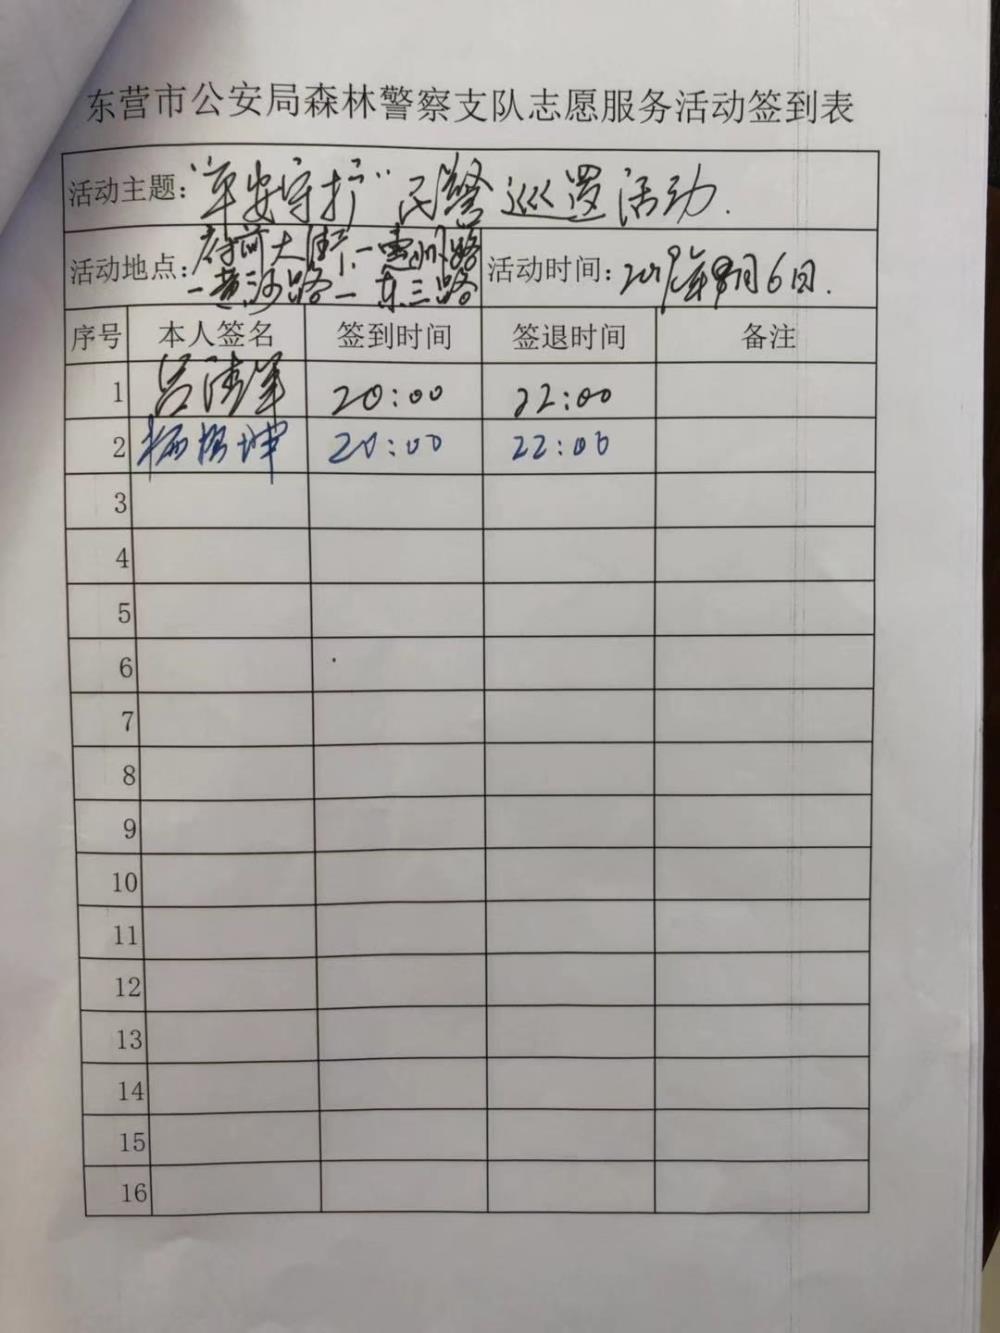 东营市公安局森林警察支队志愿服务活动签到表
活动主题：“平安守护”民警巡逻活动.
活动地点：府前大街—惠州路
—黄河路—东三路
活动时间：年8月6日.
序号 本人签名 签到时间 签退时间 备注
1 吕 20:00 22:00
2 杨 坤 20:00 22:00
3
4
5
6
7
8
9
10
11
12
13
14
15
16